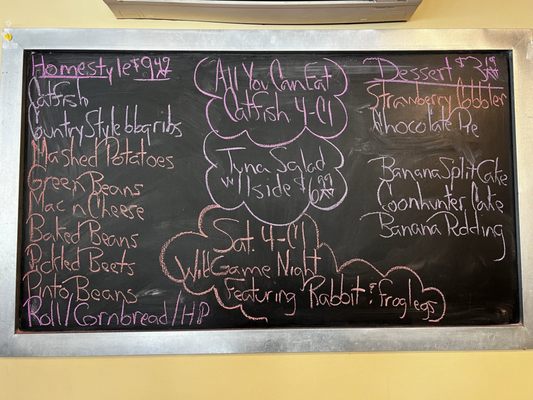 Homestyle $9.49
Catfish
Country Style bbq ribs
Mashed Potatoes
Green Beans
Mac n Cheese
Baked Beans
Pickled Beets
Pinto Beans
Roll/Cornbread/HP
All You Can Eat
Catfish 4-Cl
Tuna Salad
w/ 1 side $6.99
Sat. 4-Cl
Wild Game Night
Featuring Rabbit & Froglegs
Dessert $3.19
Strawberry Cobbler
Chocolate Pie
Banana Split Cake
Coonhunters Cake
Banana Pudding